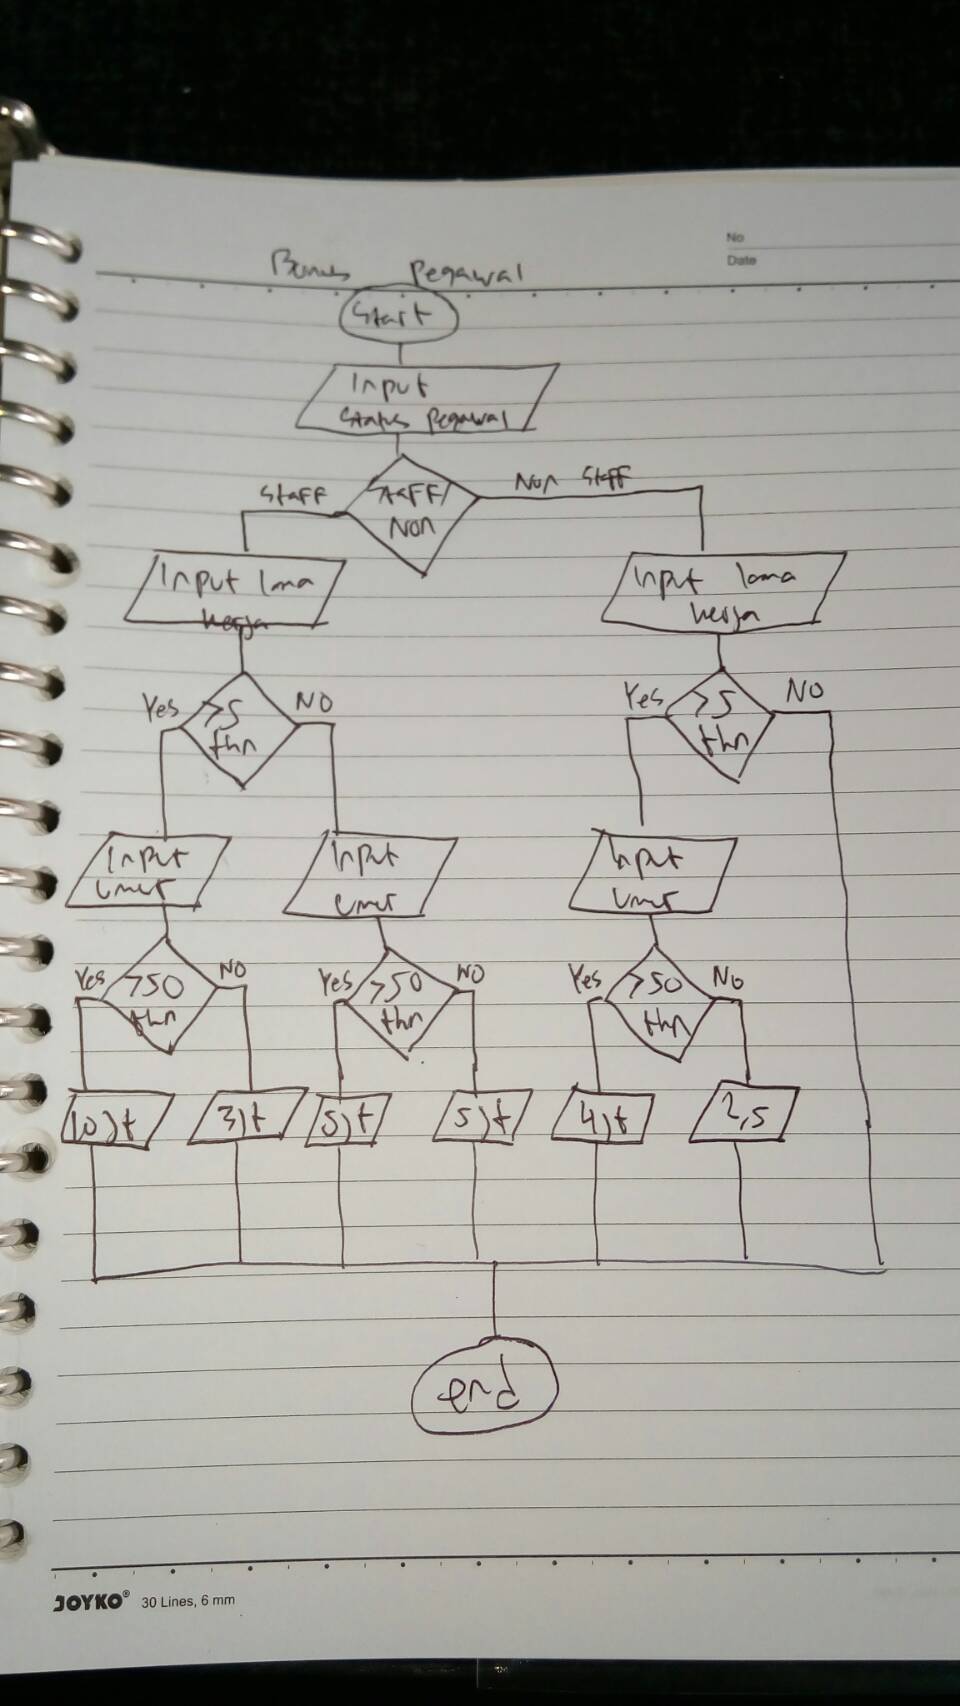 No
Date
Bonus Pegawai
Start
Input
Status Pegawai
Staff
Staff/
Non
Non Staff
Input lama
kerja
Input lama
kerja
Yes
>5
thn
NO
Yes
>5
thn
NO
Input
Umur
Input
Umur
Input
Umur
Yes
>50
thn
NO
Yes
>50
thn
NO
Yes
>50
thn
NO
10jt
3jt
5jt
5jt
4jt
2,5
end
JOYKO® 30 Lines, 6 mm